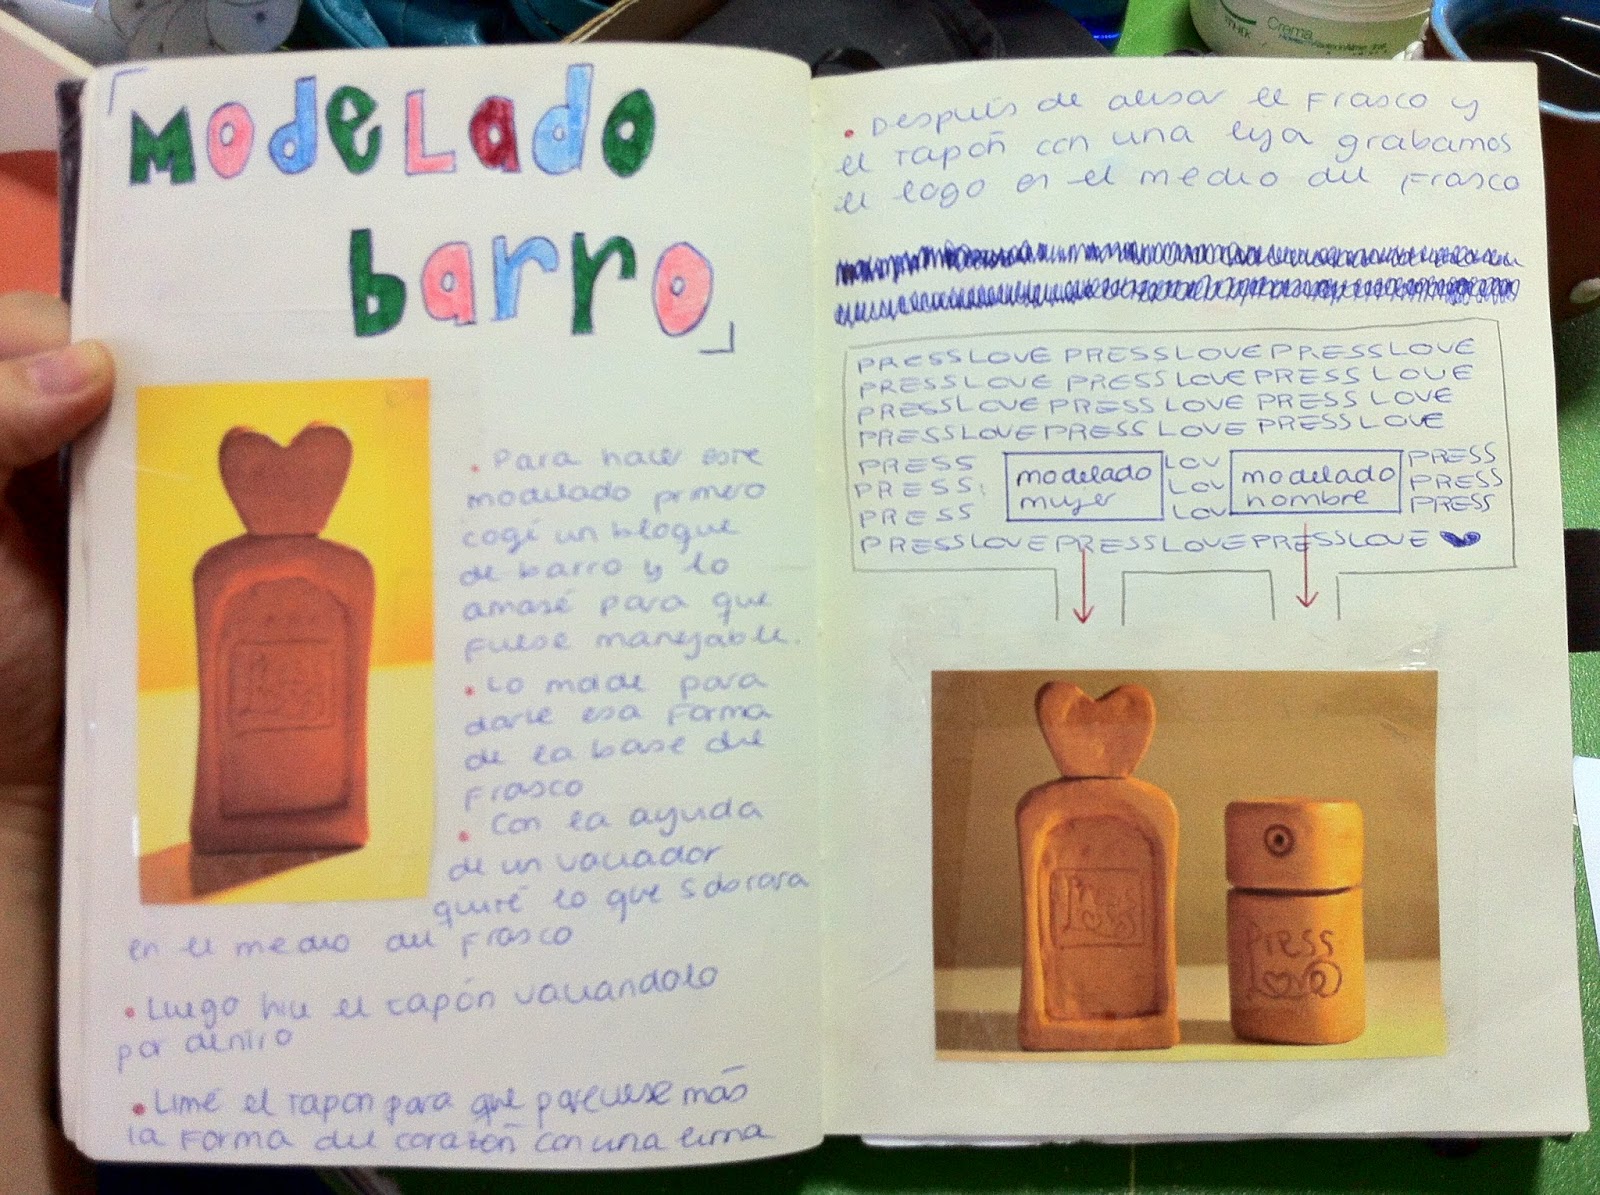 Modelado
barro
• Para hacer este
modelado primero
cogí un bloque
de barro y lo
amasé para que
fuese manejable.
• Lo moldé para
darle esa forma
de la base del
frasco
• Con la ayuda
de un vaciador
quité lo que sobrara
en el medio del frasco
• Luego hice el tapón vaciandolo
por dentro
• Limé el tapon para que pareciese más
la forma del corazón con una lima
• Después de alisar el frasco y
el tapoñ con una lija grabamos
el logo en el medio del frasco
PRESSLOVE PRESSLOVE PRESSLOVE
PRESSLOVE PRESS LOVE PRESS LOVE
PRESSLOVE PRESS LOVE PRESS LOVE
PRESSLOVE PRESS LOVE PRESS LOVE
PRESS modelado LOV modelado PRESS
PRESS mujer LOV hombre PRESS
PRESS LOV PRESS
PRESSLOVE PRESSLOVE PRESSLOVE
Press
Love
Press
Love
Crema